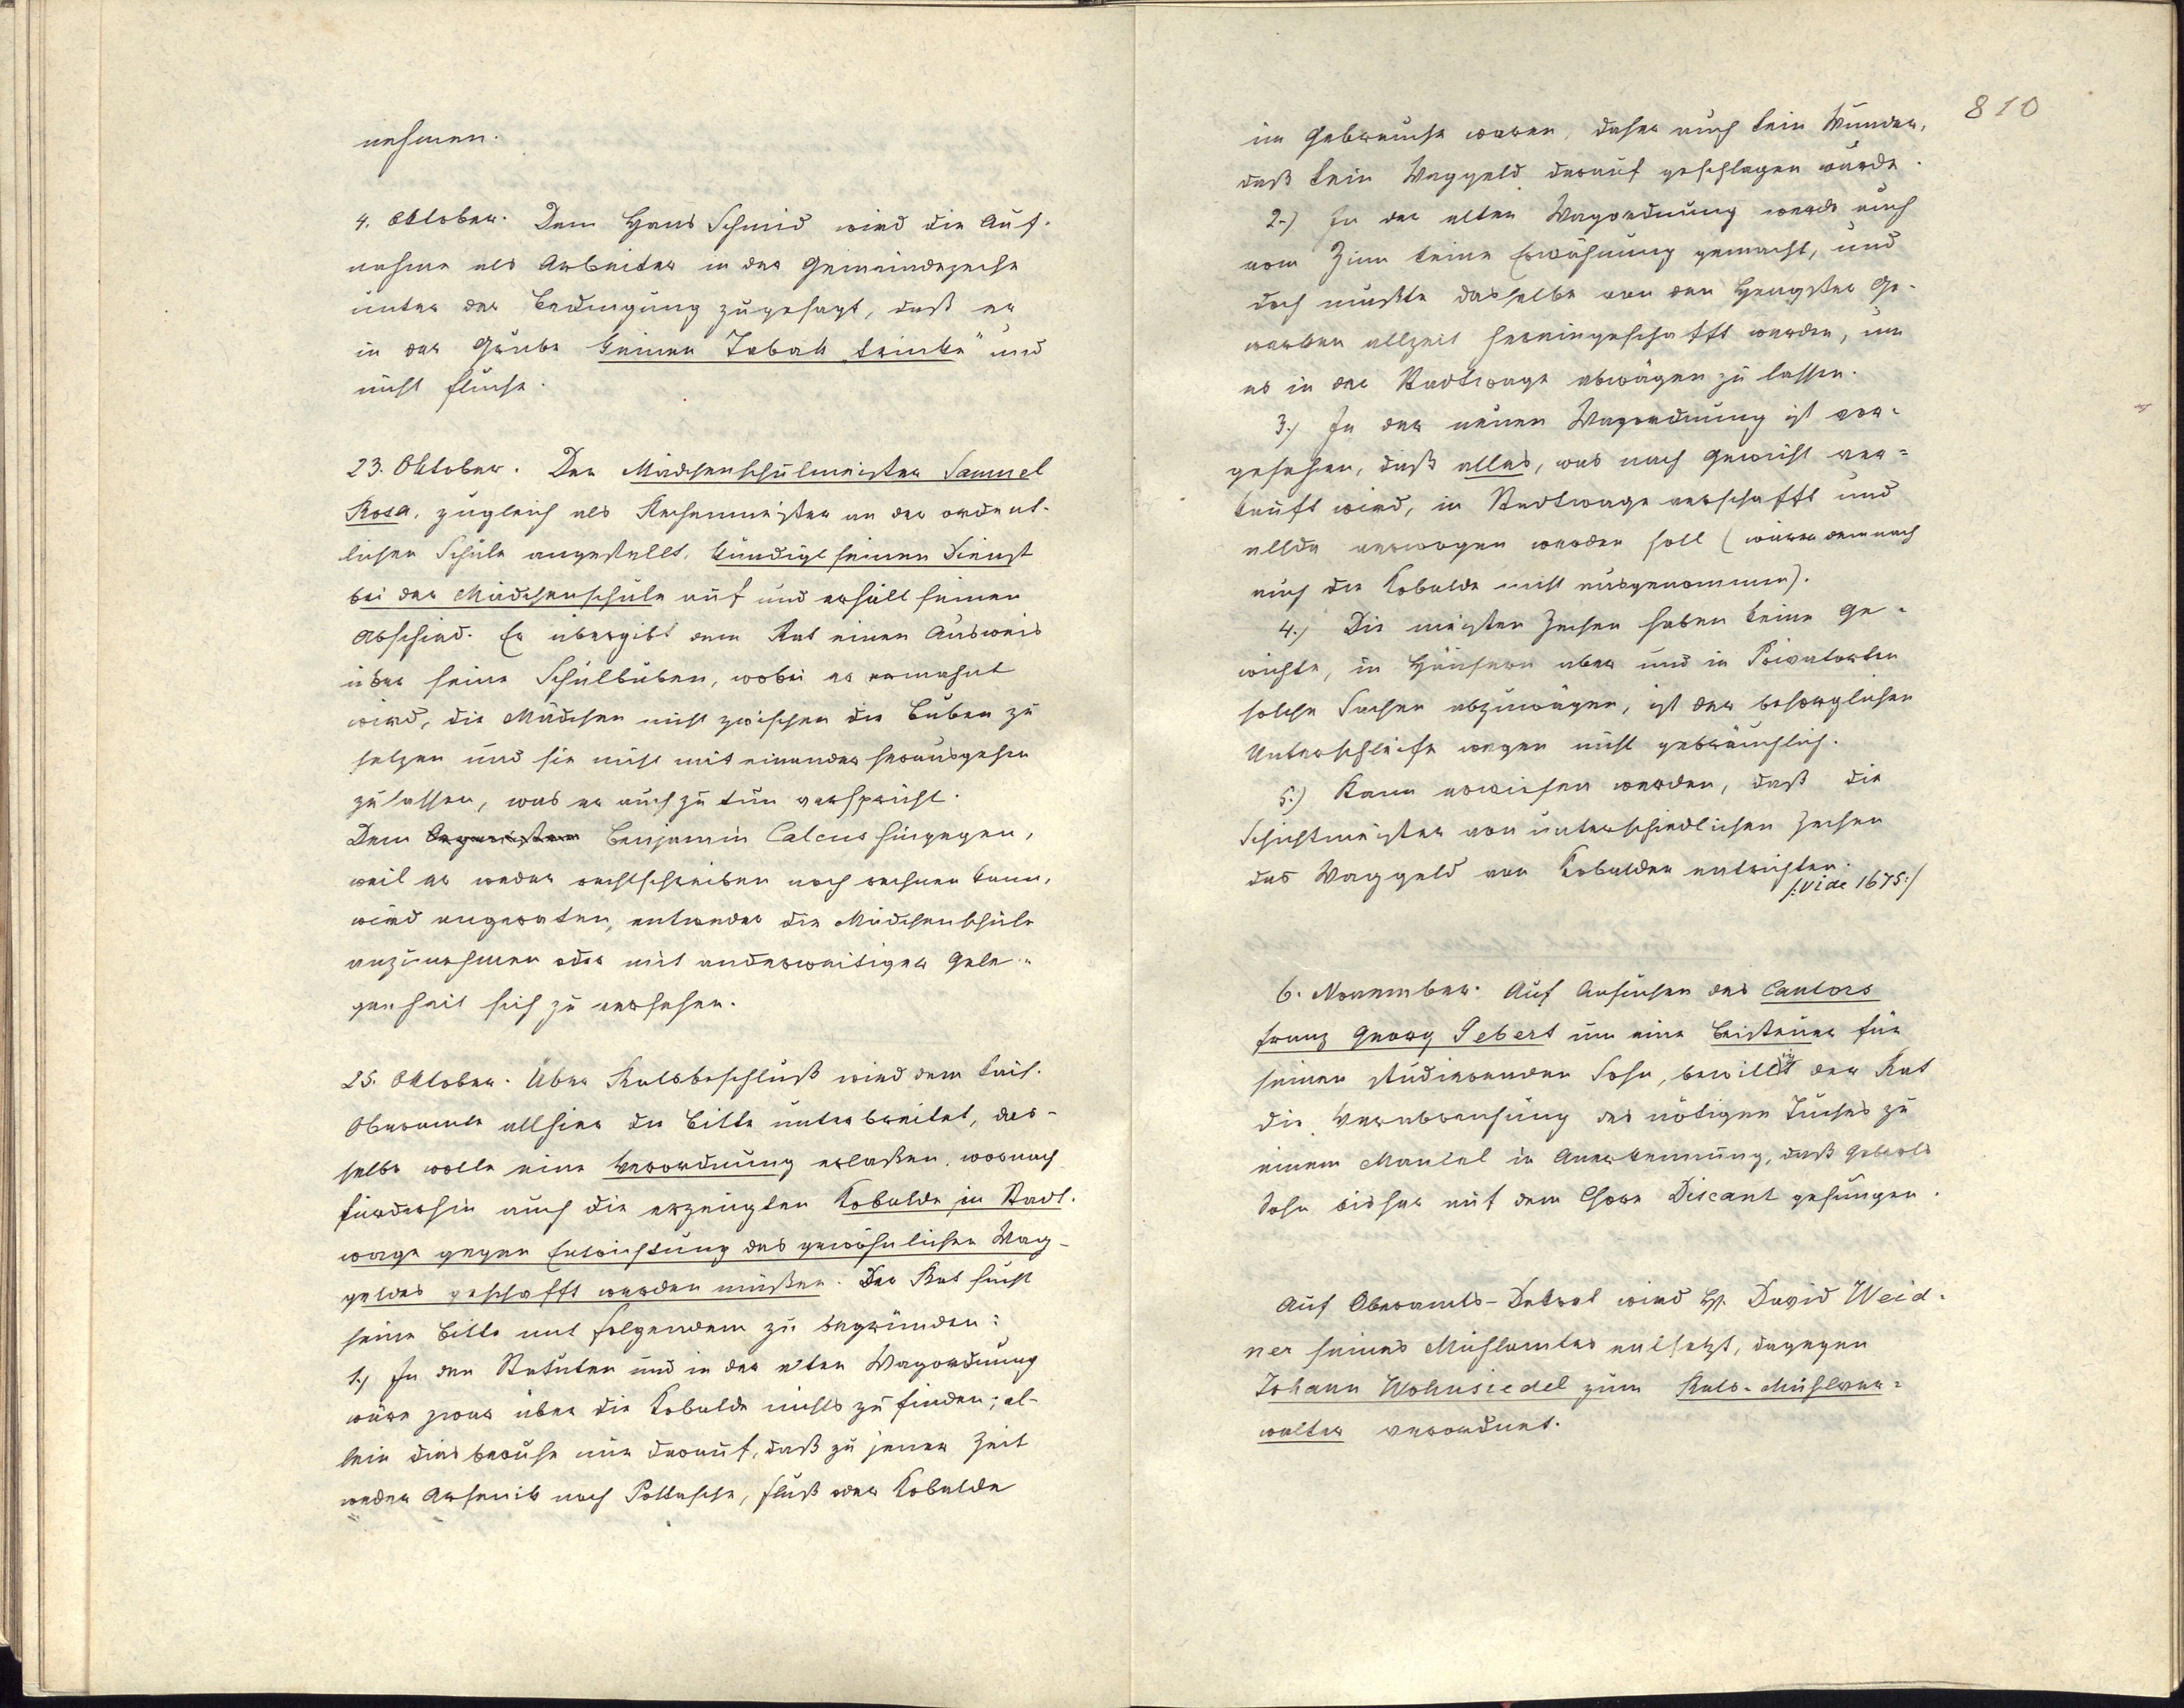 nehmen.
4. Oktober. Dem Hans Schmid wird die Auf-
nahme als Arbeiter in der Gemeindezeche
unter der Bedingung zugesagt, daß er
in der Grube keinen Tabak „trinke" und
nicht fluche.
23. Oktober. Der Mädchenschulmeister Samuel
Rosa, zugleich als Rechenmeister an der ordent-
lichen Schule angestellt, kündigt seinen Dienst
bei der Mädchenschule auf und erhält seinen
Abschied. Er übergibt dem Rat einen Ausweis
über seine Schulbuben, wobei er ermahnt
wird, die Mädchen nicht zwischen die Buben zu
setzen und sie nicht mit einander herausgehen
zu lassen, was er auch zu tun verspricht.
Dem Organisten Benjamin Calcus hingegen,
weil er weder rechtschreiben noch rechnen kann,
wird angeraten, entweder die Mädchenschule
anzunehmen oder mit anderweitiger Gele-
genheit sich zu versehen.
25. Oktober. Über Ratsbeschluß wird dem kais.
Oberamte allhier die Bitte unterbreitet, das-
selbe wolle eine Verordnung erlaßen, wornach
fürderhin auch die erzeugten Kobalde in Stadt-
wage gegen Entrichtung des gewöhnlichen Wag-
geldes geschafft werden müßen. Der Rat sucht
seine Bitte mit folgendem zu begründen:
1.) In den Statuten und in der alten Wagordnung
wäre zwar über die Kobalde nichts zu finden; al-
lein dies beruhe nur darauf, daß zu jener Zeit
weder Arsenik noch Pottasche, Fluß oder Kobalde
810
im Gebrauche waren, daher auch kein Wunder,
daß kein Waggeld darauf geschlagen wurde.
2.) In der alten Wagordnung werde auch
vom Zinn keine Erwähnung gemacht, und
doch mußte dasselbe von den Hengster Ge-
werken allzeit hereingeschafft werden, um
es in der Stadtwage abwägen zu lassen.
3.) In der neuen Wagordnung ist vor-
gesehen, daß alles, was nach Gewicht ver-
kauft wird, in Stadtwage verschafft und
allda verwogen werden soll (wären demnach
auch die Kobalde nicht ausgenommen).
4.) Die meisten Zechen haben keine Ge-
wichte, in Häusern aber und in Privatorten
solche Sachen abzuwägen, ist der besorglichen
Unterschleife wegen nicht gebräuchlich.
5.) Kann erwiesen werden, daß die
Schichtmeister von unterschiedlichen Zechen
das Waggeld von Kobalden entrichten.
/:vide 1675:/
6. November. Auf Ansuchen des Cantors
Franz Georg Gebert um eine Beisteuer für
seinen studierenden Sohn, bewilligt der Rat
die Verabreichung des nötigen Tuches zu
einem Mantel in Anerkennung, daß Geberts
Sohn bisher auf dem Chore Discant gesungen.
Auf Oberamts-Dekret wird H. David Weid-
ner seines Mühlamtes entsetzt, dagegen
Johann Wohnsiedel zum Rats-Mühlver-
walter verordnet.